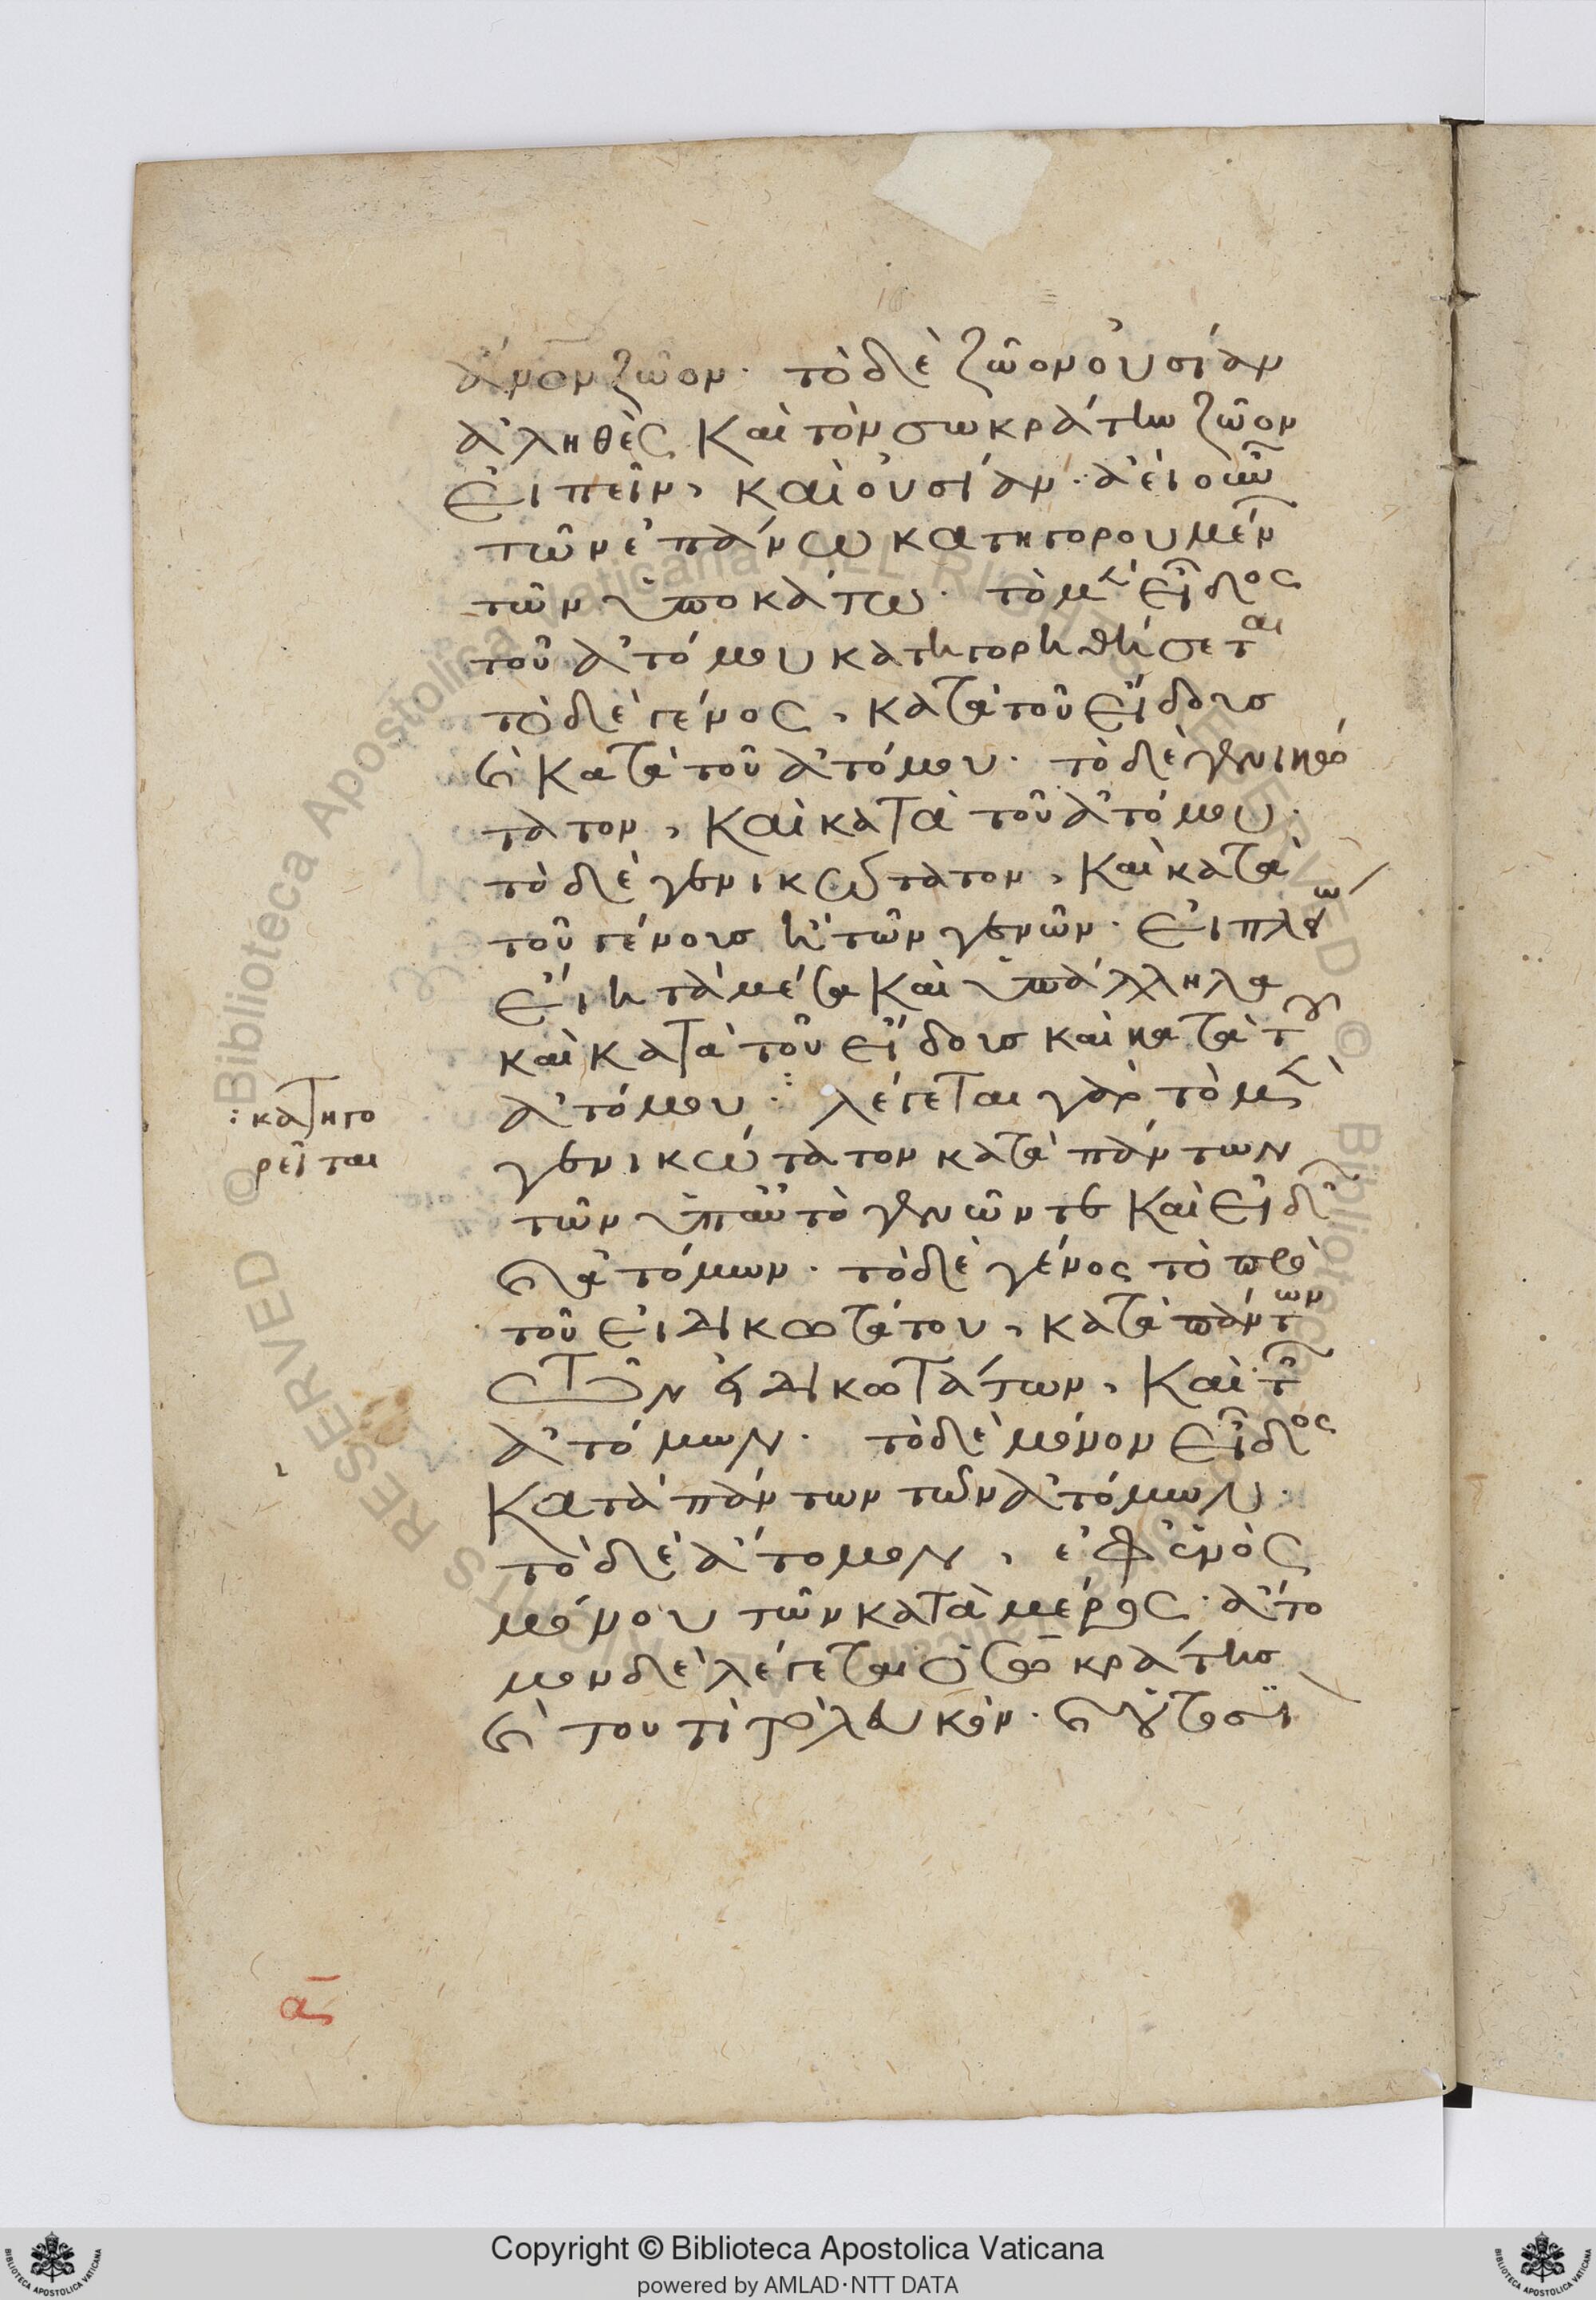 ἄνον ζῶον· τὸ δὲ ζῶον οὐσίαν
ἀληθὲς καὶ τὸν σωκράτην ζῶον
εἰπεῖν, καὶ οὐσίαν· ἀεὶ οὖν
τῶν ἐπάνω κατηγορουμέν
τῶν ὑποκάτω· τὸ μὲν εἶδος
τοῦ ἀτόμου κατηγορηθήσεται
τὸ δὲ γένος, κατὰ τοῦ εἴδους
καὶ κατὰ τοῦ ἀτόμου· τὸ δὲ γενικώ
τατον, καὶ κατὰ τοῦ ἀτόμου·
τὸ δὲ γενικώτατον, καὶ κατὰ
τοῦ γένους ἢ τῶν γενῶν· εἰ πλείω
εἴη τὰ μέσα καὶ ὑπάλληλα
καὶ κατὰ τοῦ εἴδους καὶ κατὰ τοῦ
ἀτόμου· λέγεται γὰρ τὸ μὲν
: κατηγο
ρεῖται
γενικώτατον κατὰ πάντων
τῶν ὑπ' αὐτὸ γενῶν τε καὶ εἰδῶν
καὶ ἀτόμων· τὸ δὲ γένος τὸ πρὸ
τοῦ εἰδικωτάτου, κατὰ πάντων
τῶν εἰδικωτάτων, καὶ τῶν
ἀτόμων· τὸ δὲ μόνον εἶδος
κατὰ πάντων τῶν ἀτόμων·
τὸ δὲ ἄτομον, ἐφ' ἑνὸς
μόνου τῶν κατὰ μέρος· ἄτο
μον δὲ λέγεται ὁ σωκράτης
καὶ τουτὶ τὸ λευκόν· καὶ οὑτοσὶ
α
Copyright © Biblioteca Apostolica Vaticana
powered by AMLAD·NTT DATA